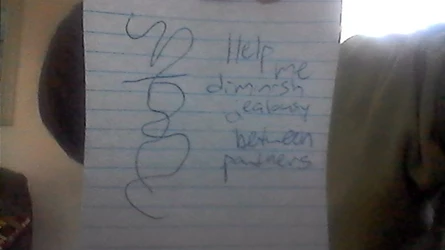 Help
me
diminish
jealousy
between
partners